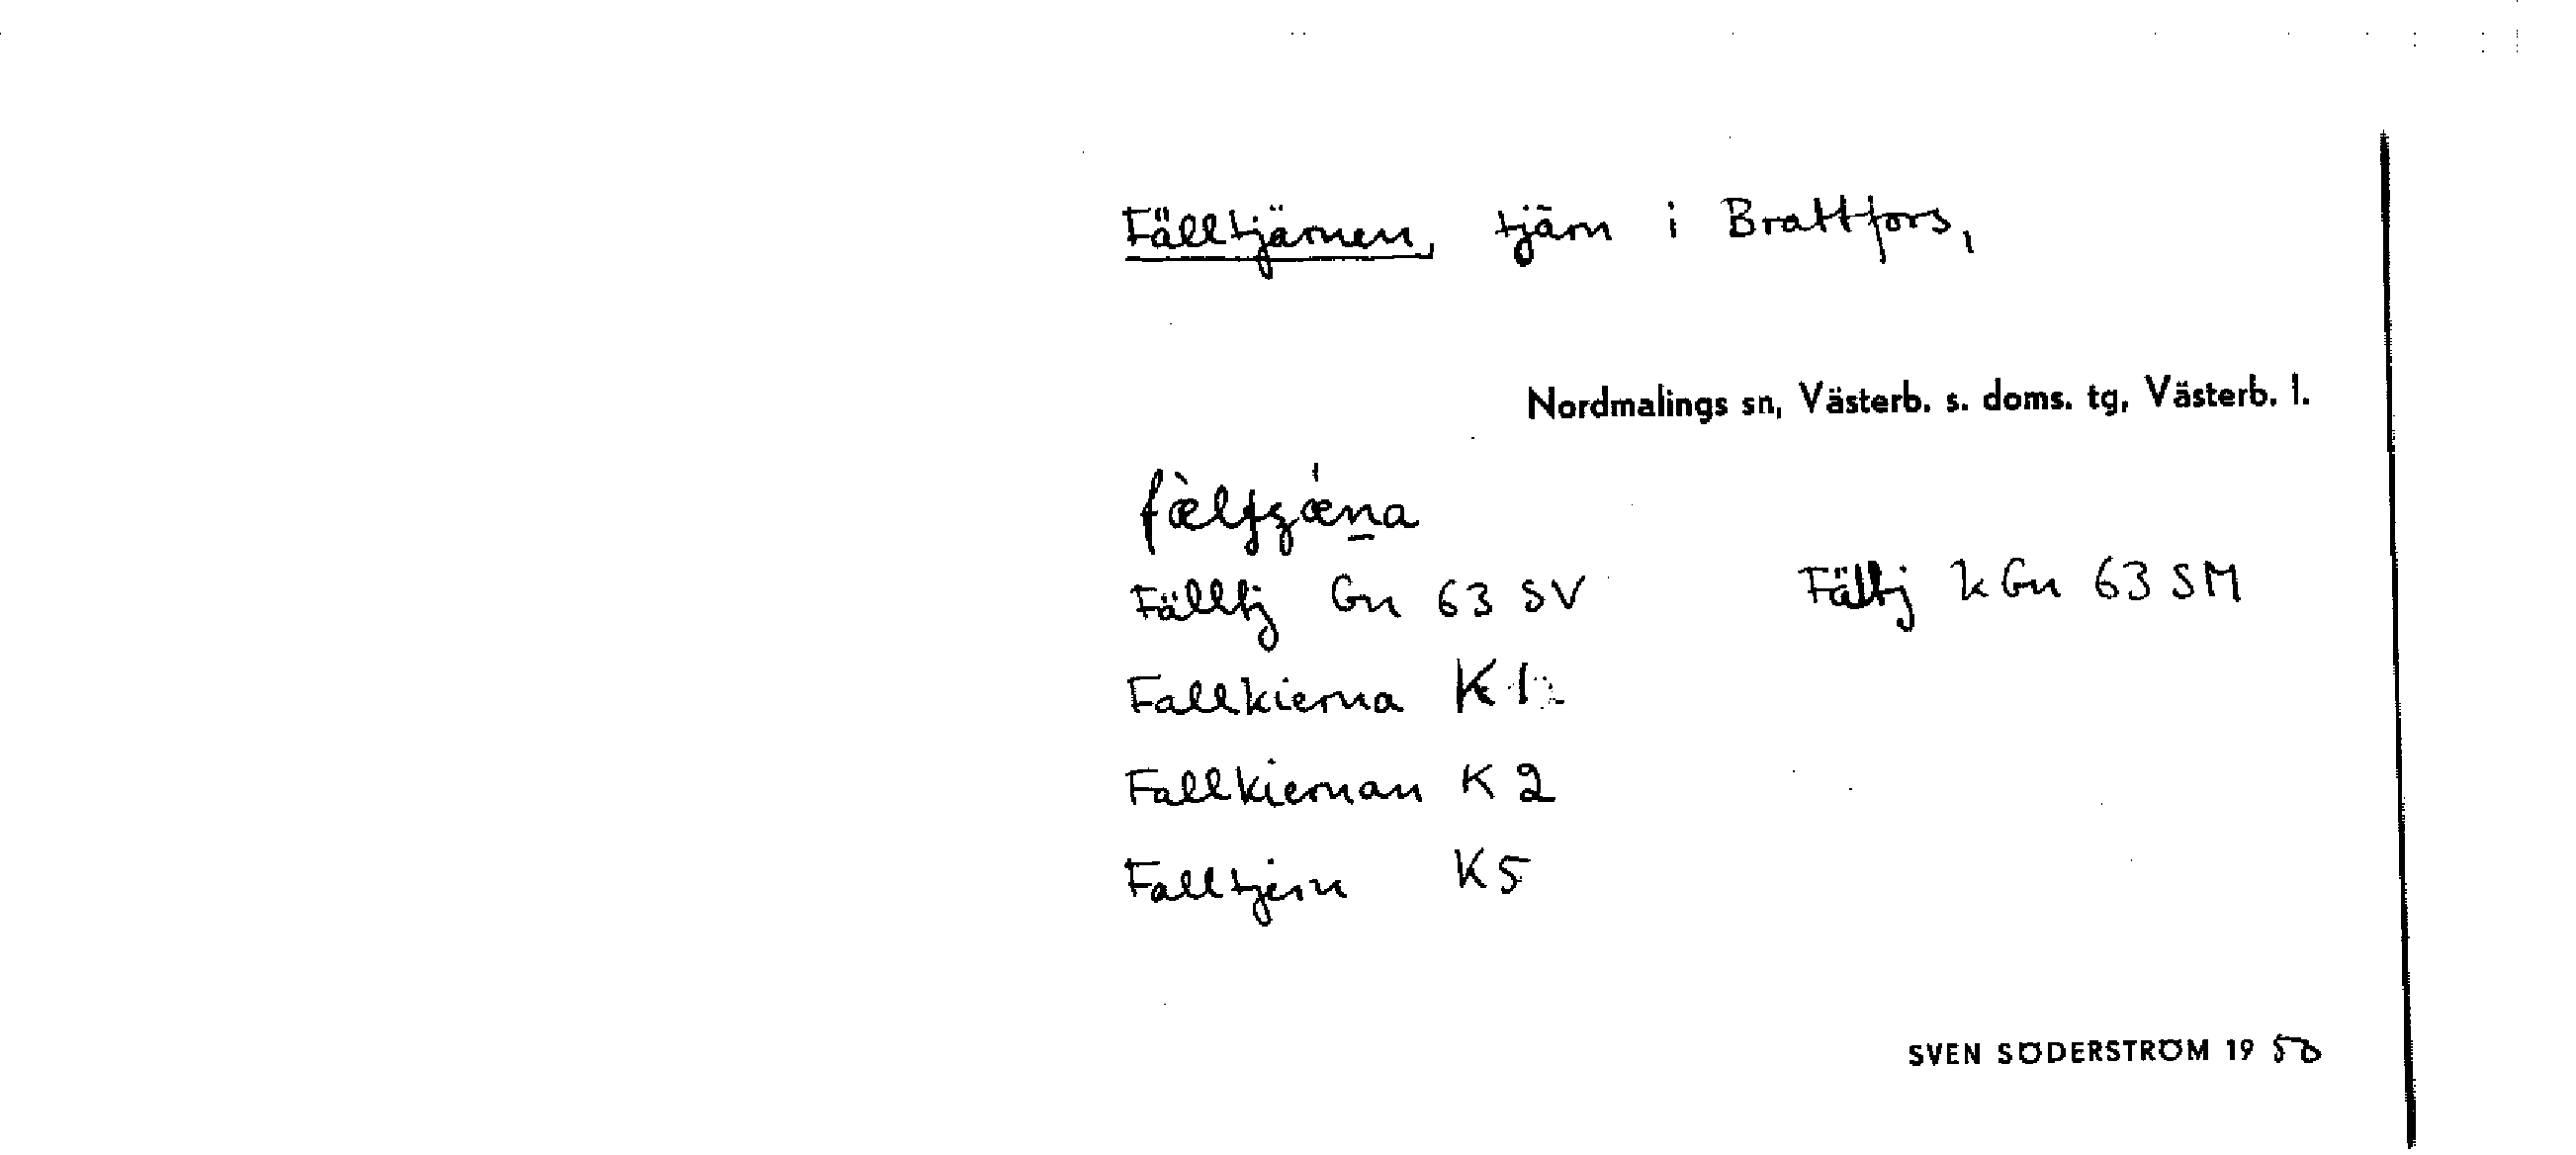 Fälltjärnen, tjärn i Brattfors,
Nordmalings sn, Västerb. s. doms. tg, Västerb. l.
Fälltj Gn 63 SV Fälltj k Gn 63 SM
Fallkierna K 1
Fallkiernan K 2
Falltjern K 5
SVEN SÖDERSTRÖM 19 50